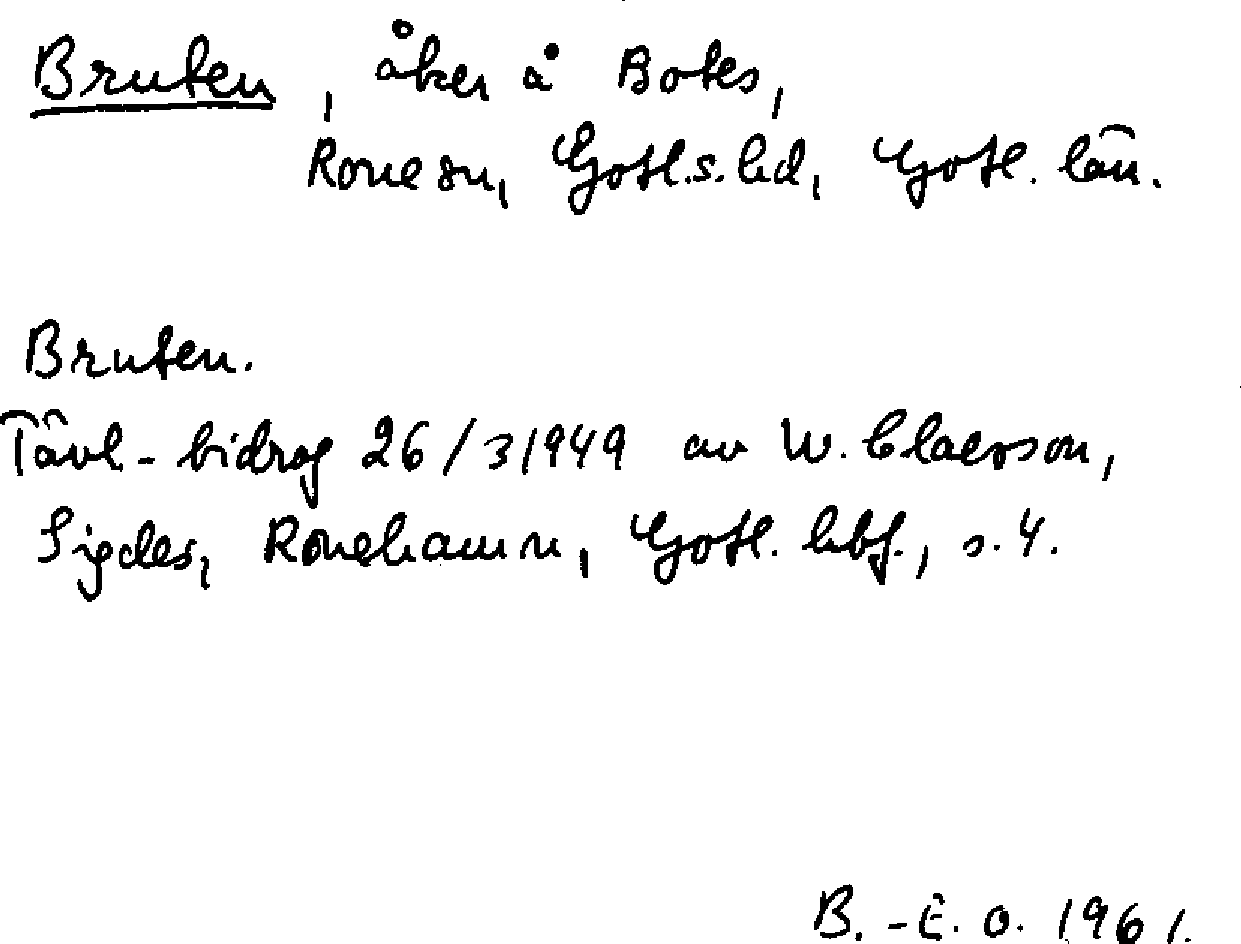 Bruten, åker å Botes,
Rone sn, Gotl. s. hd, Gotl. län.
Bruten.
Tävl.-bidrag 26/3 1949 av W. Claesson,
Sigdes, Ronehamn, Gotl. hbf., s. 4.
B.-E. O. 1961.